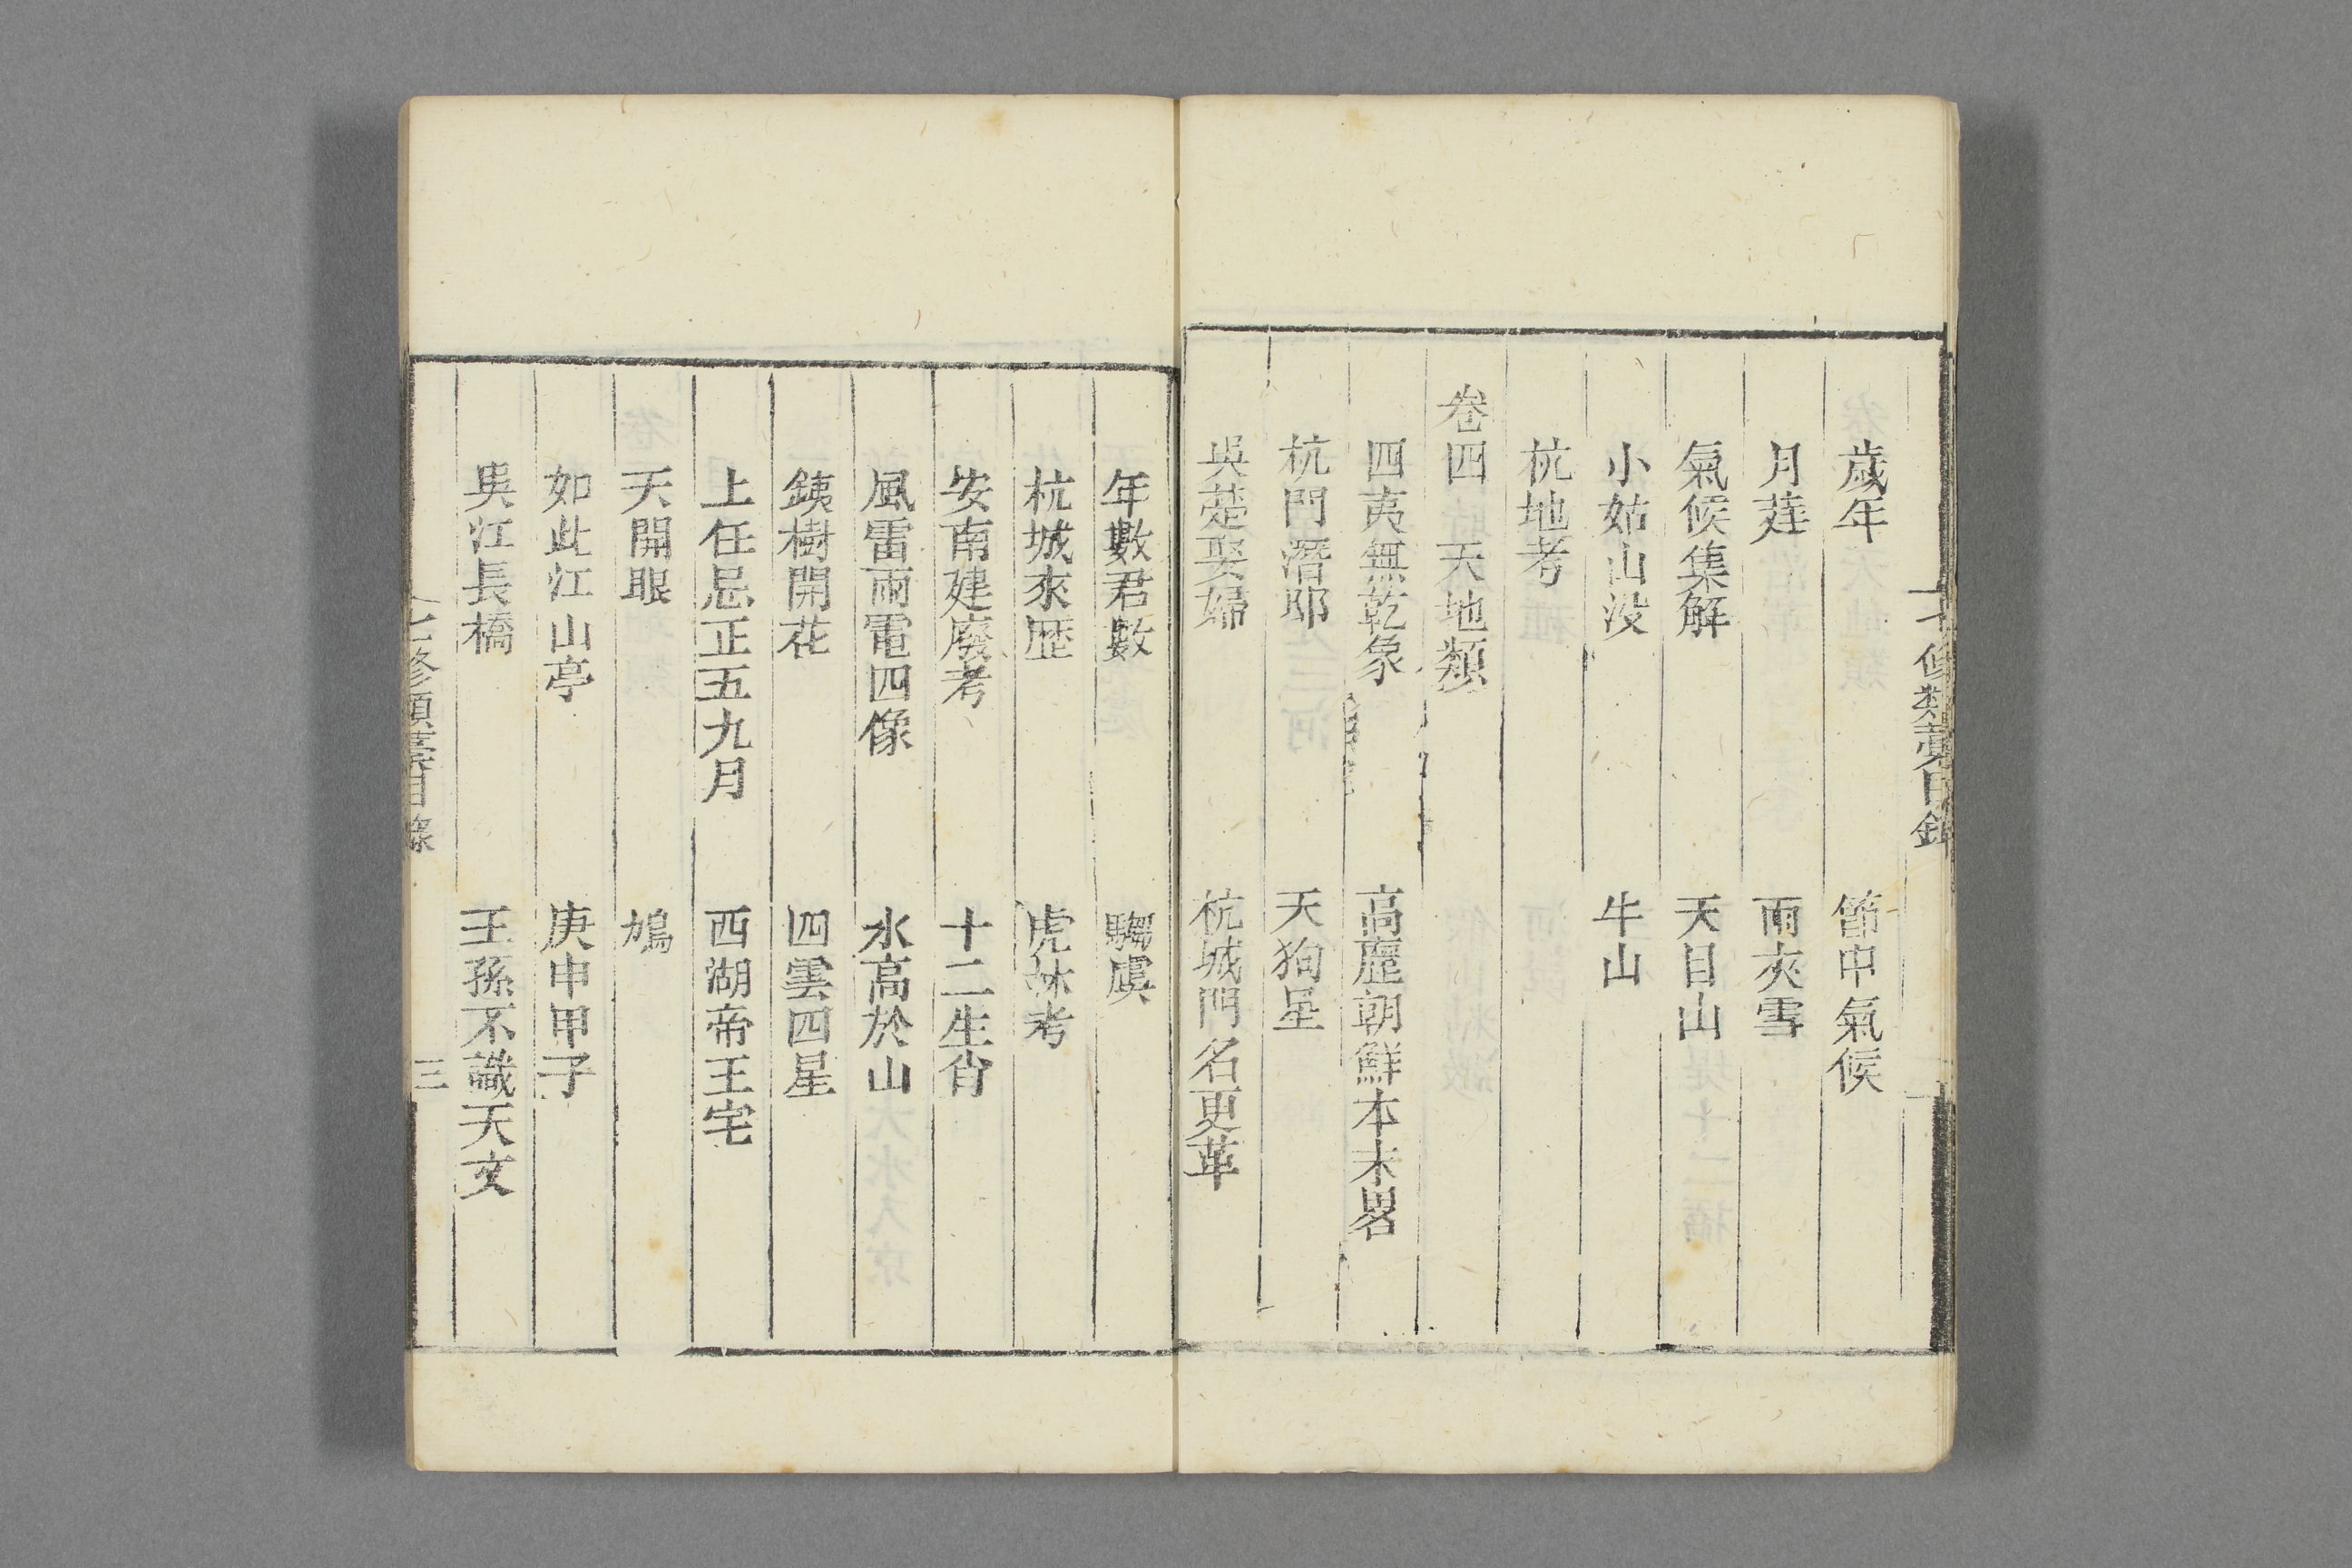 七修類藁目錄
歲年 節中氣候
月莛 雨夾雪
氣候集解 天目山
小姑山没 牛山
杭地考
卷四 天地類
四夷無乾象 高麗朝鮮本末畧
杭門潛邸 天狗星
吳楚娶婦 杭城門名更革
年數君數 騶虞
杭城來歷 虎林考
安南建廢考 十二生肖
風雷雨電四像 水高於山
銕樹開花 四雲四星
上任忌正五九月 西湖帝王宅
天開眼 鳩
如此江山亭 庚申甲子
吳江長橋 王孫不識天文
七修類藁目錄 三